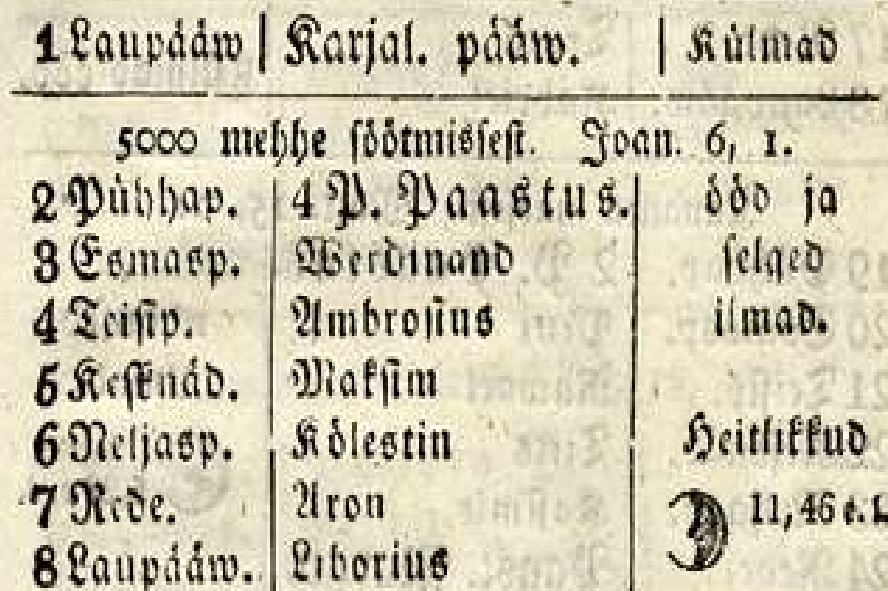 1 Laupääw | Karjal. pääw. | Külmad
5000 mehhe söötmissest. Joan. 6, 1.
2 Pühhap. | 4 P. Paastus. | ööd ja
3 Esmasp. | Werdinand | selged
4 Teisip. | Ambrosius | ilmad.
5 Kesknäd. | Maksim
6 Neljasp. | Kölestin | Heitlikkud
7 Rede. | Aron | 11,46 e. l.
8 Laupääw. | Liborius